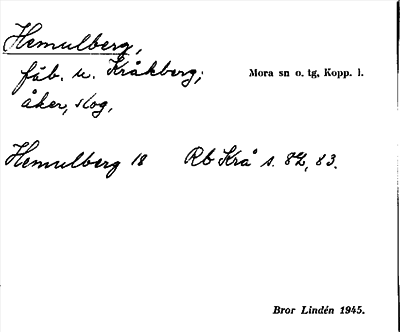 Hemulberg,
fäb. u. Kråkberg; Mora sn o. tg, Kopp. l.
åker, slog,
Hemulberg 18 Rb Krå s. 82, 83.
Bror Lindén 1945.